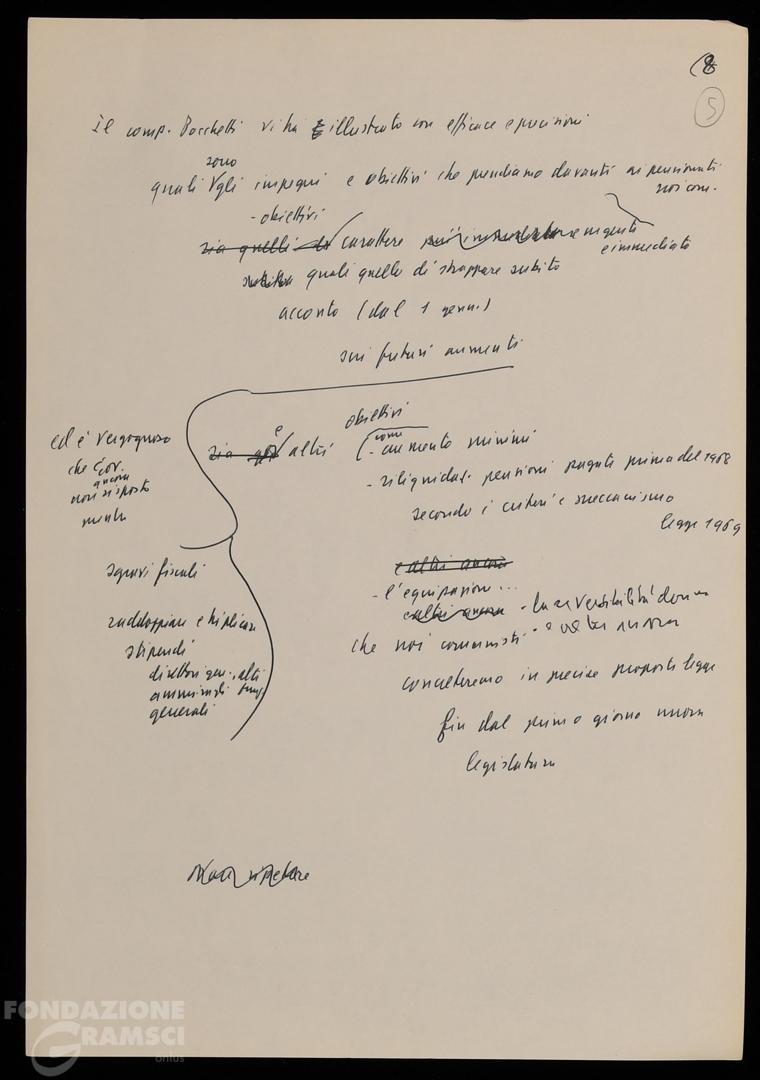 (8
5
Il comp. Pocchetti vi ha illustrato con efficace e precisioni
sono
quali gli impegni e obiettivi che prendiamo davanti ai pensionati
noi com.
- obiettivi
sia quelli di carattere più urgente
e immediato
quali quello di strappare subito
acconto (dal 1 genn.)
sui futuri aumenti
ed è vergognoso
che Gov.
ancora
non risposto
mentre
sgravi fiscali
raddoppiare e triplicare
stipendi
direttori gen., alti
ammiragli
generali
obiettivi
e
sia altri
come
- aumento minimi
- riliquidaz. pensioni pagate prima del 1968
secondo i criteri e meccanismo
legge 1969
e altri ancora
- l'equiparazione...
e altri ancora - la reversibilità donna
che noi comunisti e altri ancora
concreteremo in precise proposte legge
fin dal primo giorno nuova
legislatura
ripetere
FONDAZIONE
GRAMSCI
onlus